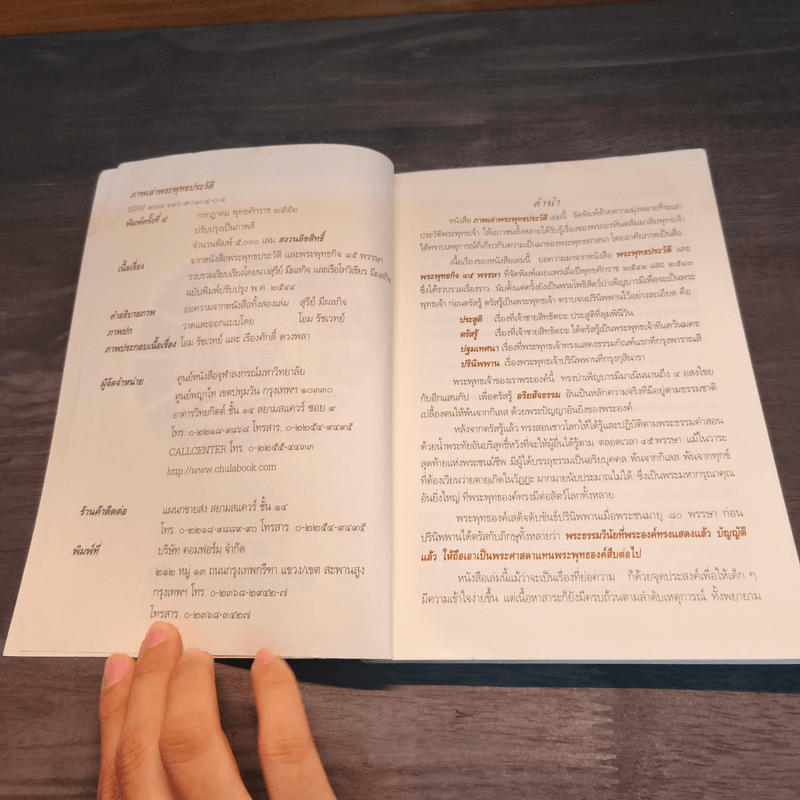 ภาพเล่าพระพุทธประวัติ
พิมพ์ครั้งที่ ๕ กรกฎาคม พุทธศักราช ๒๕๕๒
ปรับปรุงเป็นภาพสี
จำนวนพิมพ์ ๕,๐๐๐ เล่ม สงวนลิขสิทธิ์
เนื้อเรื่อง จากหนังสือพระพุทธประวัติ และพระพุทธกิจ ๔๕ พรรษา
รวบรวมเรียบเรียงโดยนางสุรีย์ มีผลกิจ และเรือโทวิเชียร มีผลกิจ
ฉบับพิมพ์ปรับปรุง พ.ศ. ๒๕๔๔
คำอธิบายภาพ ย่อความจากหนังสือทั้งสองเล่ม สุรีย์ มีผลกิจ
ภาพปก วาดและออกแบบโดย โอม รัชเวทย์
ภาพประกอบเนื้อเรื่อง โอม รัชเวทย์ และ เรืองศักดิ์ ดวงพลา
ผู้จัดจำหน่าย ศูนย์หนังสือจุฬาลงกรณ์มหาวิทยาลัย
ศูนย์พญาไท เขตปทุมวัน กรุงเทพฯ ๑๐๓๓๐
อาคารวิทยกิตติ์ ชั้น ๑๔ สยามสแควร์ ซอย ๙
โทร. ๐-๒๒๑๘-๙๘๖๘ โทรสาร. ๐-๒๒๕๔-๙๔๙๕
CALLCENTER โทร. ๐-๒๒๕๕-๔๔๓๓
http://www.chulabook.com
ร้านค้าติดต่อ แผนกขายส่ง สยามสแควร์ ชั้น ๑๔
โทร. ๐-๒๒๑๘-๙๘๘๙-๙๐ โทรสาร. ๐-๒๒๕๔-๙๔๙๕
พิมพ์ที่ บริษัท คอมฟอร์ม จำกัด
๒๑๒ หมู่ ๑๓ ถนนกรุงเทพกรีฑา แขวง/เขต สะพานสูง
กรุงเทพฯ โทร. ๐-๒๓๖๘-๒๙๔๒-๗
โทรสาร. ๐-๒๓๖๘-๓๔๒๗
คำนำ
หนังสือ ภาพเล่าพระพุทธประวัติ เล่มนี้ จัดพิมพ์ด้วยความมุ่งหมายที่จะเล่า
ประวัติพระพุทธเจ้า ให้เยาวชนทั้งหลายได้รับรู้เรื่องของพระอรหันตสัมมาสัมพุทธเจ้า
ได้ทราบเหตุการณ์ที่เกี่ยวกับความเป็นมาของพระพุทธศาสนา โดยอาศัยภาพเป็นสื่อ
เนื้อเรื่องของหนังสือเล่มนี้ ย่อความมาจากหนังสือ พระพุทธประวัติ และ
พระพุทธกิจ ๔๕ พรรษา ที่จัดพิมพ์เผยแพร่เมื่อปีพุทธศักราช ๒๕๔๑ และ ๒๕๔๓
ซึ่งได้รวบรวมเรื่องราว นับตั้งแต่ครั้งยังเป็นพระโพธิสัตว์บำเพ็ญบารมีเพื่อจะเป็นพระ
พุทธเจ้า ก่อนตรัสรู้ ตรัสรู้เป็นพระพุทธเจ้า ตราบจนปรินิพพานไว้อย่างละเอียด คือ
ประสูติ เรื่องที่เจ้าชายสิทธัตถะ ประสูติที่ลุมพินีวัน
ตรัสรู้ เรื่องที่เจ้าชายสิทธัตถะ ได้ตรัสรู้เป็นพระพุทธเจ้าที่แคว้นมคธ
ปฐมเทศนา เรื่องที่พระพุทธเจ้าทรงแสดงธรรมกัณฑ์แรกที่กรุงพาราณสี
ปรินิพพาน เรื่องพระพุทธเจ้าปรินิพพานที่กรุงกุสินารา
พระพุทธเจ้าของเราพระองค์นี้ ทรงบำเพ็ญบารมีมาเนิ่นนานถึง ๔ อสงไขย
กับอีกแสนกัป เพื่อตรัสรู้ อริยสัจธรรม อันเป็นหลักความจริงที่มีอยู่ตามธรรมชาติ
เปลื้องตนให้พ้นจากกิเลส ด้วยพระปัญญาอันยิ่งของพระองค์
หลังจากตรัสรู้แล้ว ทรงสอนชาวโลกให้ได้รู้และปฏิบัติตามพระธรรมคำสอน
ด้วยน้ำพระทัยอันบริสุทธิ์หวังที่จะให้ผู้อื่นได้รู้ตาม ตลอดเวลา ๔๕ พรรษา แม้ในวาระ
สุดท้ายแห่งพระชนม์ชีพ มีผู้ได้บรรลุธรรมเป็นอริยบุคคล พ้นจากกิเลส พ้นจากทุกข์
ที่ต้องเวียนว่ายตายเกิดในวัฏฏะ มากมายนับประมาณไม่ได้ ซึ่งเป็นพระมหากรุณาคุณ
อันยิ่งใหญ่ ที่พระพุทธองค์ทรงมีต่อสัตว์โลกทั้งหลาย
พระพุทธองค์เสด็จดับขันธ์ปรินิพพานเมื่อพระชนมายุ ๘๐ พรรษา ก่อน
ปรินิพพานได้ตรัสกับภิกษุทั้งหลายว่า พระธรรมวินัยที่พระองค์ทรงแสดงแล้ว บัญญัติ
แล้ว ให้ถือเอาเป็นพระศาสดาแทนพระพุทธองค์สืบต่อไป
หนังสือเล่มนี้แม้ว่าจะเป็นเรื่องที่ย่อความ ก็ด้วยจุดประสงค์เพื่อให้เด็ก ๆ
มีความเข้าใจง่ายขึ้น แต่เนื้อหาสาระก็ยังมีครบถ้วนตามลำดับเหตุการณ์ ทั้งพยายาม